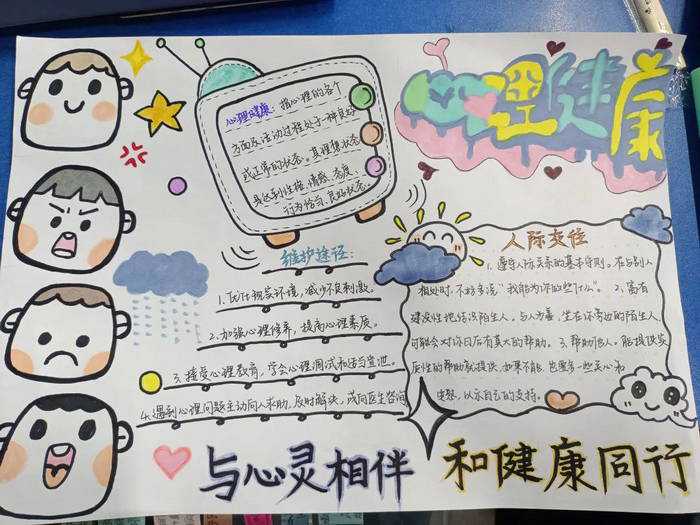 心理健康
心理健康：指心理的各个
方面及活动过程处于一种良好
或正常的状态。其理想状态
是达到性格、情感、态度、
行为恰当、良好状态。
维护途径：
1.优化现实环境，减少不良刺激。
2.加强心理修养，提高心理素质。
3.接受心理教育，学会心理调试和适当宣泄。
4.遇到心理问题主动向人求助，及时解决，或向医生咨询
人际交往
1.遵守人际关系的基本守则。在与别人
相处时，不妨多说“我能为你的些什么”。2.富有
建设性地结识陌生人。与人为善，坐在你旁边的陌生人
可能会对你日后有莫大的帮助。3.帮助他人。能提供实
质性的帮助就提供，如果不能，也要多一些关心和
安慰，以示自己的支持。
与心灵相伴
和健康同行